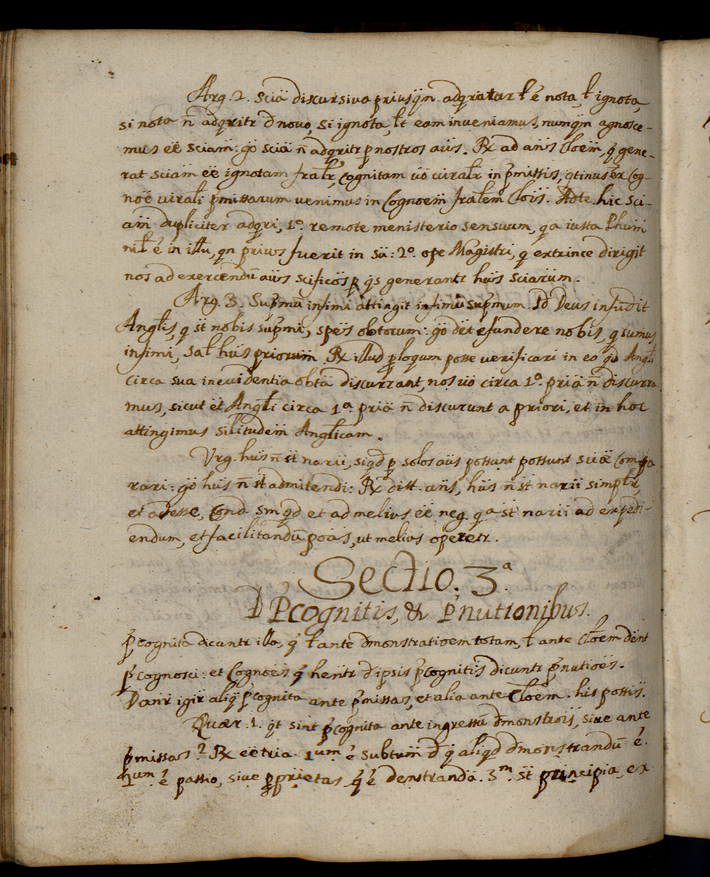 Arg. 2. Sciã discursiva priusq̃m adq̃ratur ł ẽ nota, ł ignota,
si nota ñ adq̃ritr d novo, si ignota, łt eam inveniamus, numq̃m agnosce-
mus eẽ sciam: go sciã ñ adq̃ritr p nostros aus. Rx ad añs Cloem, q̃ gene-
rat sciam eẽ ignotam fralr, cognitam uo uiralr in p̃missis, qtinus ex Cog-
noẽ uirali p̃missarum venimus in Cognoem fralem Clois. Adte hic Sci-
am dupliciter adqri, 1º. remote menisterio sensuum, q̃a iuxta Phum
nił ẽ in illu, qn prius fuerit in sũ: 2º. ope Magistri, q extrince dirigit
nos ad exercendũ aus scificos p q̃s generantr huis sciarum.
Arg. 3. Supmũ infimi attingit infimũ supmum. Sd Deus infudit
Anglis, q st nobis supmi, speis obtorum: go dẽt efundere nobis, q sumus
infimi, Sal huis priorum. Rx illud ploqum posse verificari in eo qd Angli
circa sua inevidentia obta discurrant, nos uo circa 1ª. priã ñ discurra-
mus, sicut et Angli circa 1ª priã ñ discurunt a priori, et in hoc
attingimus silitudem Anglicam.
Urg. huis ñ st narii, siqd p solos aus possunt possunt sciæ Compa
rari: go huis ñ st admitendi: Rx dist. añs, huis ñ st narii simplr,
et adesse, Cond. Sm qd et ad melius eẽ neg. qª st narii ad expedi-
endum, et facilitandũ poas, ut melius operetr.
Sectio. 3ª
D P̃cognitis, & P̃nutionibus.
P̃cognita dicuntr illa, q̃ ł ante dmonstratioem totam, ł ante Cloem dẽnt
p̃cognosci: et Cognoes q̃ hentr d ipsis p̃cognitis dicuntr p̃nutioẽs.
Danr igir aliq̃ p̃cognita ante p̃missas, et alia ante Cloem. his possis.
Quær. 1. q̃t sint p̃cognita ante ingressũ dmonstrois, sive ante
p̃missas? Rx eẽ tria. 1um ẽ Subtum d q̃ aliqd dmonstrandũ ẽ.
2um ẽ passio, sive pprietas q̃ ẽ denstrandã. 3m. st principia, ex